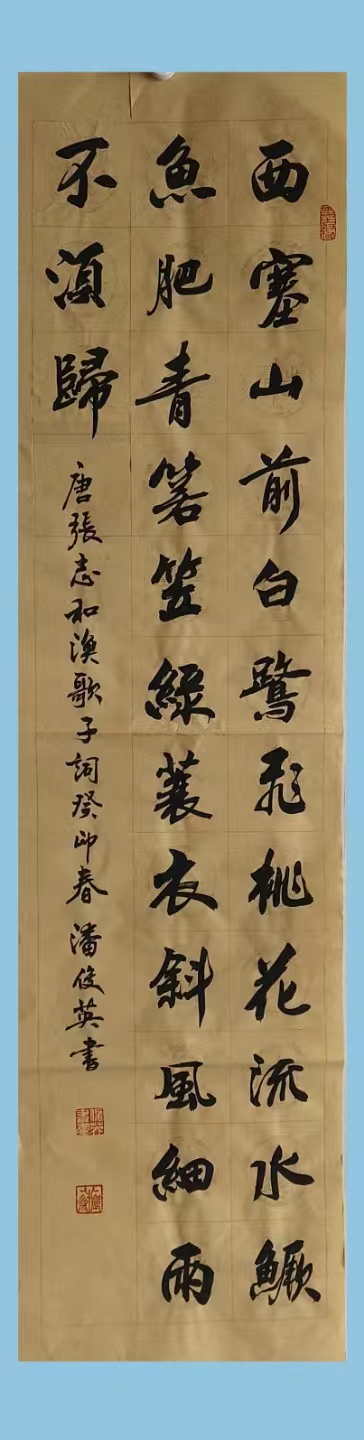 西塞山前白鷺飛桃花流水鱖
魚肥青箬笠綠蓑衣斜風細雨
不須歸
唐張志和漁歌子詞癸卯春潘俊英書